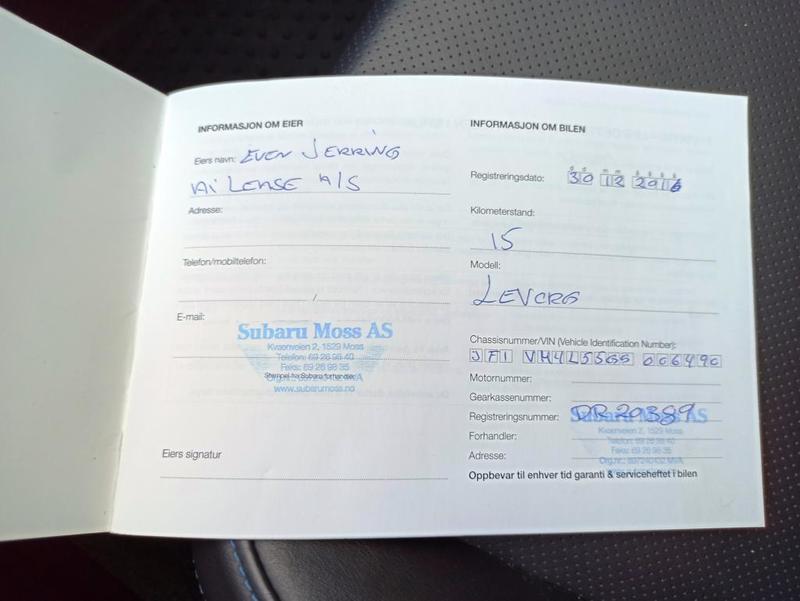 INFORMASJON OM EIER
Eiers navn: EVEN JERRING
Adresse:
Telefon/mobiltelefon:
/
E-mail:
Subaru Moss AS
Kvaenveien 2, 1529 Moss
Telefon: 69 26 98 40
Faks: 69 26 98 35
Stempel fra Subaru forhandler
www.subarumoss.no
Eiers signatur
INFORMASJON OM BILEN
Registreringsdato: 30 12 2016
Kilometerstand:
15
Modell:
LEVORG
Chassisnummer/VIN (Vehicle Identification Number):
JF1 VM4L55GG 006490
Motornummer:
Gearkassenummer:
Registreringsnummer: DR 20389
Subaru Moss AS
Forhandler:
Kvaenveien 2, 1529 Moss
Telefon: 69 26 98 40
Faks: 69 26 98 35
Adresse:
Oppbevar til enhver tid garanti & serviceheftet i bilen